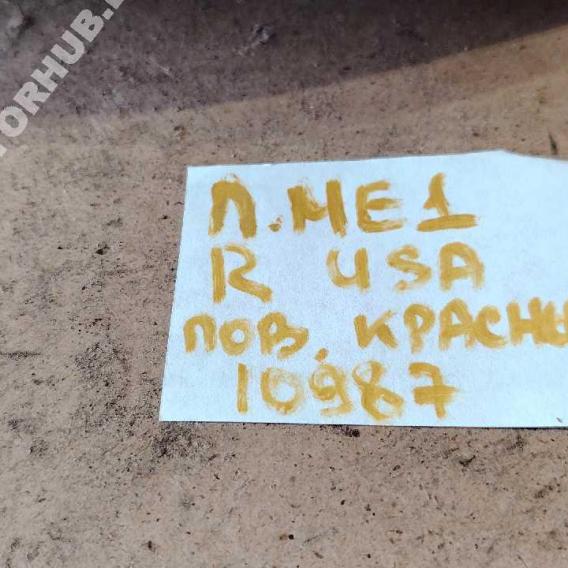 TORHUB.
П.МЕ1
R USA
ПОВ. КРАСНЫ
10987